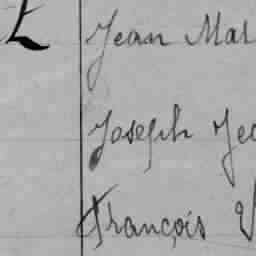 L Jean Mat
Joseph Jea
François V